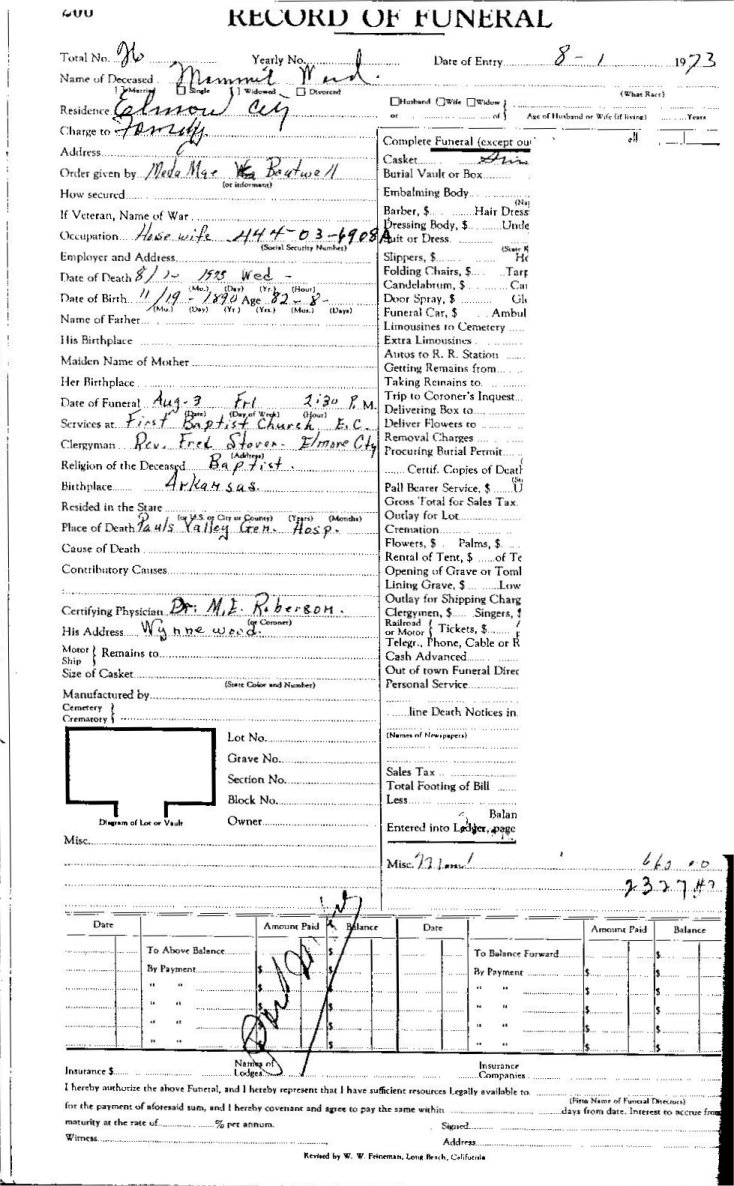 200 RECORD OF FUNERAL
Total No. 26 Yearly No. Date of Entry 8 - 1 1973
Name of Deceased Mammie Ward.
Married Single Widowed Divorced
(What Race)
Residence Elmore City
Husband Wife Widow
or of Age of Husband or Wife (if living) Years
Charge to Family
Address
Order given by Meda Mae Boutwell
(or informant)
How secured
If Veteran, Name of War
Occupation House wife 444-03-6908A
(Social Security Number)
Employer and Address
Date of Death 8/1- 1973 Wed -
(Mo.) (Day) (Yr.) (Hour)
Date of Birth 11/19-1890 Age 82-8-
(Mo.) (Day) (Yr.) (Yrs.) (Mos.) (Days)
Name of Father
His Birthplace
Maiden Name of Mother
Her Birthplace
Date of Funeral Aug-3 Fri 2:30 P. M.
(Date) (Day of Week) (Hour)
Services at First Baptist Church E.C.
Clergyman Rev. Fred Stover- Elmore Cty
(Address)
Religion of the Deceased Baptist.
Birthplace Arkansas.
Resided in the State
(or U.S. or City or County) (Years) (Months)
Place of Death Pauls Valley Gen. Hosp.
Cause of Death
Contributory Causes
Certifying Physician Dr. M.E. Roberson.
(or Coroner)
His Address Wynnewood.
Motor Ship Remains to
Size of Casket
(State Color and Number)
Manufactured by
Cemetery
Crematory
Lot No.
Grave No.
Section No.
Block No.
Owner
Diagram of Lot or Vault
Misc.
Complete Funeral (except out
Casket
Burial Vault or Box
Embalming Body
(Na
Barber, $ Hair Dress
Dressing Body, $ Unde
Suit or Dress
(State
Slippers, $ Ho
Folding Chairs, $ Tarp
Candelabrum, $ Ca
Door Spray, $ Gl
Funeral Car, $ Ambul
Limousines to Cemetery
Extra Limousines
Autos to R. R. Station
Getting Remains from
Taking Remains to
Trip to Coroner's Inquest
Delivering Box to
Deliver Flowers to
Removal Charges
Procuring Burial Permit
Certif. Copies of Deat
Pall Bearer Service, $ U
Gross Total for Sales Tax
Outlay for Lot
Cremation
Flowers, $ Palms, $
Rental of Tent, $ of Te
Opening of Grave or Toml
Lining Grave, $ Low
Outlay for Shipping Charg
Clergymen, $ Singers, $
Railroad or Motor Tickets, $
Telegr., Phone, Cable or R
Cash Advanced
Out of town Funeral Direc
Personal Service
line Death Notices in
(Names of Newspapers)
Sales Tax
Total Footing of Bill
Less
Balan
Entered into Ledger, page
Misc. 660.00
2327.47
Date Amount Paid Balance Date Amount Paid Balance
To Above Balance $ To Balance Forward $
By Payment $ $ By Payment $ $
" " $ $ " " $ $
" " $ $ " " $ $
" " $ $ " " $ $
" " $ $ " " $ $
Paid
Insurance $ Names of Lodges Insurance Companies
I hereby authorize the above Funeral, and I hereby represent that I have sufficient resources Legally available to
(Firm Name of Funeral Directors)
for the payment of aforesaid sum, and I hereby covenant and agree to pay the same within days from date. Interest to accrue from
maturity at the rate of % per annum. Signed
Witness Address
Revised by W. W. Feineman, Long Beach, California